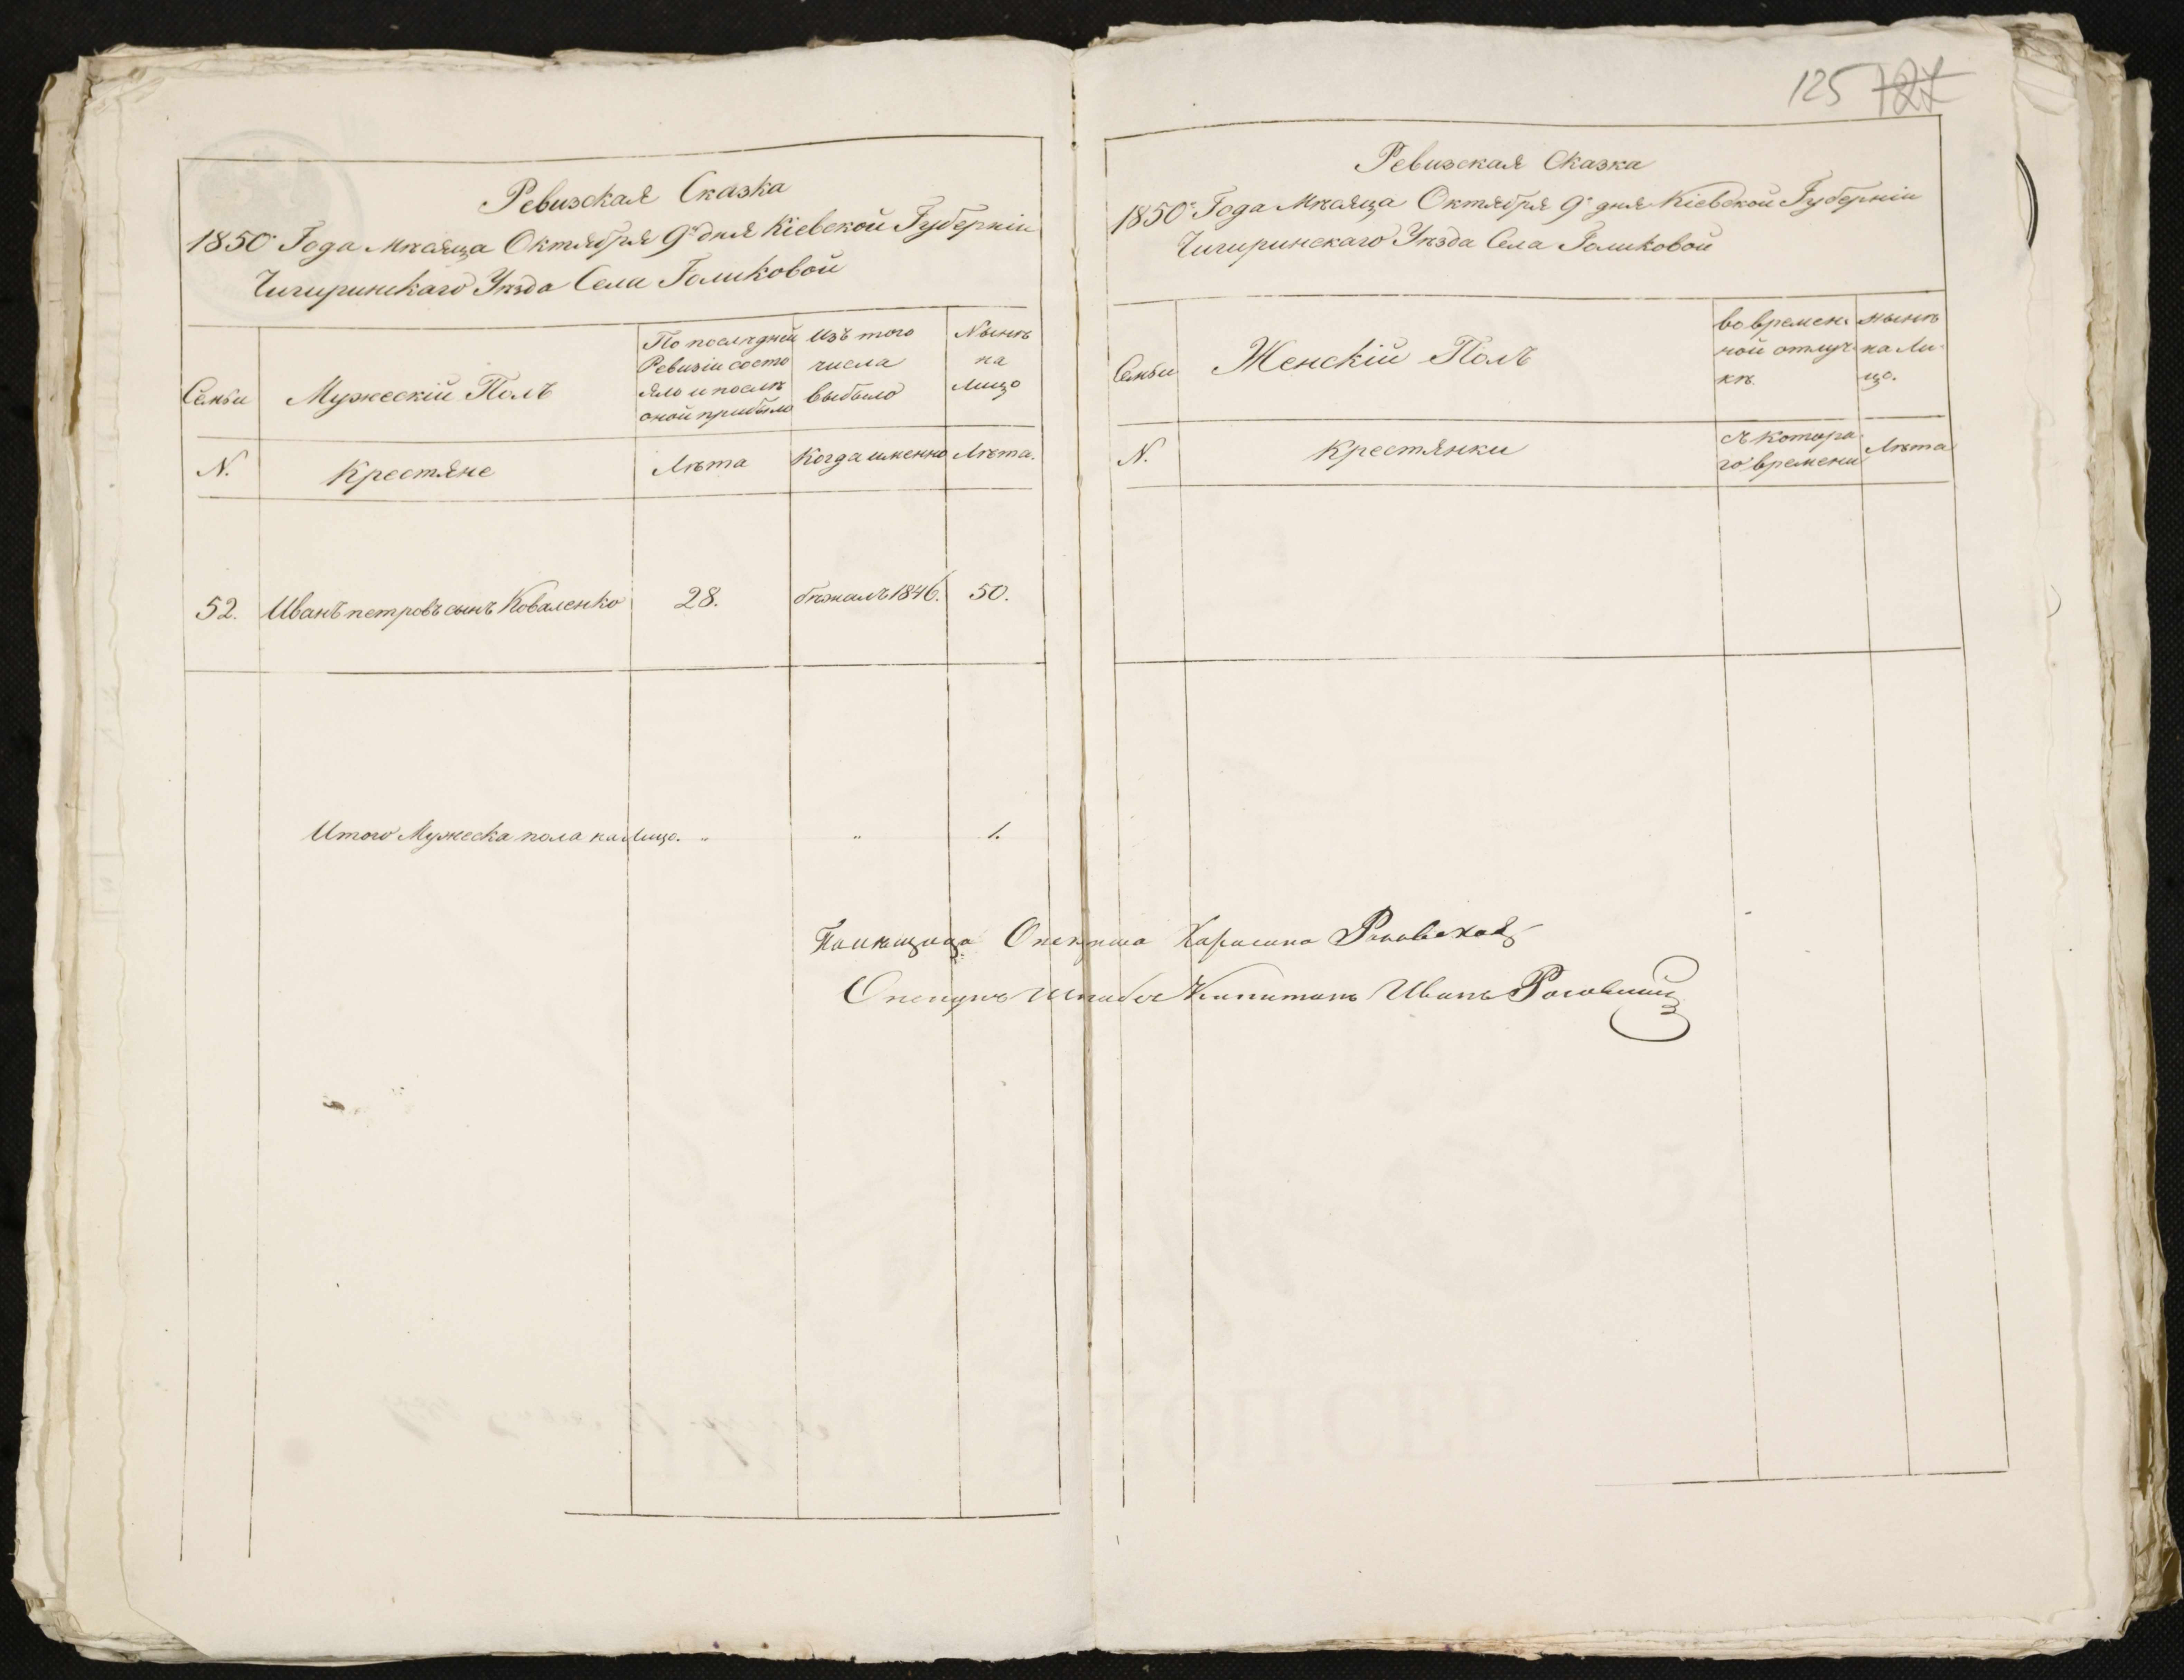 125 727
Ревизская Сказка
1850º Года Мѣсяца Октября 9º дня Кіевской Губерніи
Чигиринскаго Уѣзда Села Голиковой
Семьи
Мужескій Полъ
По послѣдней
Ревизіи состо
яло и послѣ
оной прибыло
Изъ того
числа
выбыло
Нынѣ
на
лицо
N.
Крестяне
Лѣта
Когда именно
Лѣта.
52.
Иванъ петровъ сынъ Коваленко
28.
бѣжалъ 1846.
50.
Итого Мужеска пола на лицо. „ „ 1.
Ревизская Сказка
1850º Года Мѣсяца Октября 9º дня Кіевской Губерніи
Чигиринскаго Уѣзда Села Голиковой
Семьи
Женскій Полъ
во времен
ной отлуч
кѣ.
нынѣ
на ли
цо.
N.
Крестянки
съ котора
го времени
Лѣта
Помѣщица Опекунша
Опекунъ Штабсъ Капитанъ Иванъ